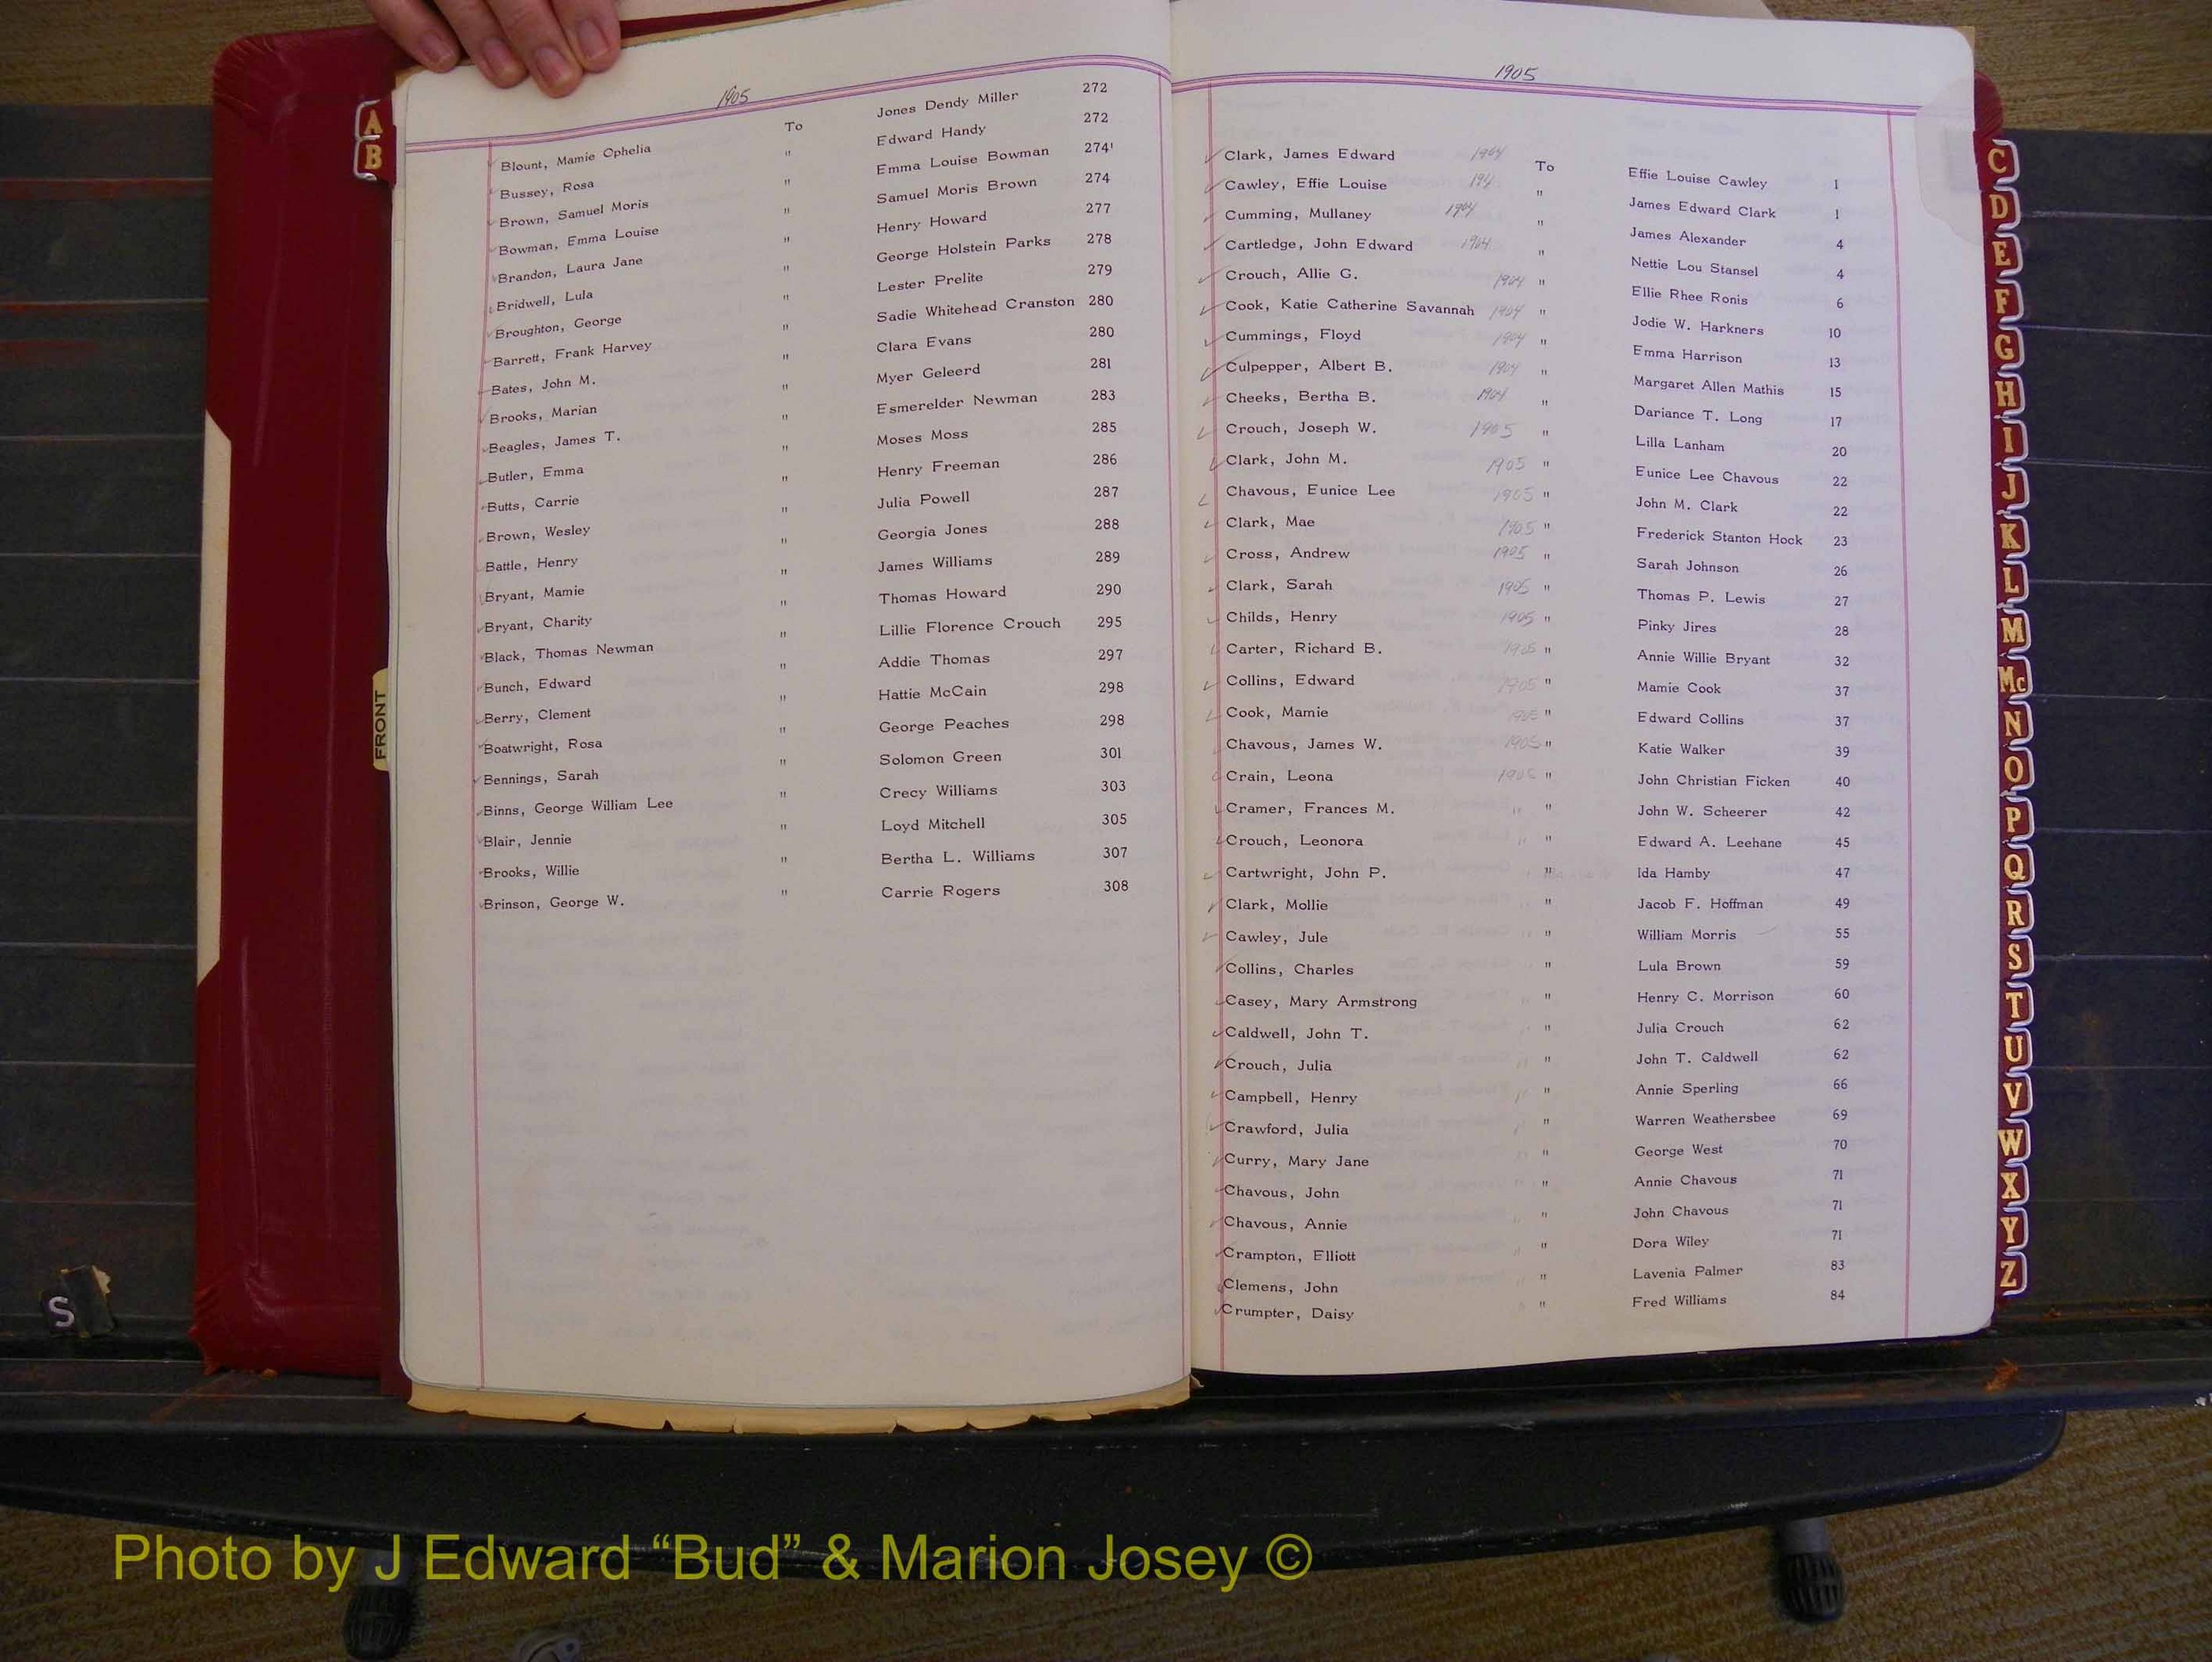 1905
Blount, Mamie Ophelia To Jones Dendy Miller 272
Bussey, Rosa " Edward Handy 272
Brown, Samuel Moris " Emma Louise Bowman 274
Bowman, Emma Louise " Samuel Moris Brown 274
Brandon, Laura Jane " Henry Howard 277
Bridwell, Lula " George Holstein Parks 278
Broughton, George " Lester Prelite 279
Barrett, Frank Harvey " Sadie Whitehead Cranston 280
Bates, John M. " Clara Evans 280
Brooks, Marian " Myer Geleerd 281
Beagles, James T. " Esmerelder Newman 283
Butler, Emma " Moses Moss 285
Butts, Carrie " Henry Freeman 286
Brown, Wesley " Julia Powell 287
Battle, Henry " Georgia Jones 288
Bryant, Mamie " James Williams 289
Bryant, Charity " Thomas Howard 290
Black, Thomas Newman " Lillie Florence Crouch 295
Bunch, Edward " Addie Thomas 297
Berry, Clement " Hattie McCain 298
Boatwright, Rosa " George Peaches 298
Bennings, Sarah " Solomon Green 301
Binns, George William Lee " Crecy Williams 303
Blair, Jennie " Loyd Mitchell 305
Brooks, Willie " Bertha L. Williams 307
Brinson, George W. " Carrie Rogers 308
1905
Clark, James Edward 1904 To Effie Louise Cawley 1
Cawley, Effie Louise 194 " James Edward Clark 1
Cumming, Mullaney 1904 " James Alexander 4
Cartledge, John Edward 1904 " Nettie Lou Stansel 4
Crouch, Allie G. 1904 " Ellie Rhee Ronis 6
Cook, Katie Catherine Savannah 1904 " Jodie W. Harkners 10
Cummings, Floyd 1904 " Emma Harrison 13
Culpepper, Albert B. 1904 " Margaret Allen Mathis 15
Cheeks, Bertha B. 1904 " Dariance T. Long 17
Crouch, Joseph W. 1905 " Lilla Lanham 20
Clark, John M. 1905 " Eunice Lee Chavous 22
Chavous, Eunice Lee 1905 " John M. Clark 22
Clark, Mae 1905 " Frederick Stanton Hock 23
Cross, Andrew 1905 " Sarah Johnson 26
Clark, Sarah 1905 " Thomas P. Lewis 27
Childs, Henry 1905 " Pinky Jires 28
Carter, Richard B. 1905 " Annie Willie Bryant 32
Collins, Edward 1905 " Mamie Cook 37
Cook, Mamie 1905 " Edward Collins 37
Chavous, James W. 1905 " Katie Walker 39
Crain, Leona 1905 " John Christian Ficken 40
Cramer, Frances M. " " John W. Scheerer 42
Crouch, Leonora " " Edward A. Leehane 45
Cartwright, John P. " " Ida Hamby 47
Clark, Mollie " " Jacob F. Hoffman 49
Cawley, Jule " " William Morris 55
Collins, Charles " " Lula Brown 59
Casey, Mary Armstrong " " Henry C. Morrison 60
Caldwell, John T. " " Julia Crouch 62
Crouch, Julia " " John T. Caldwell 62
Campbell, Henry " " Annie Sperling 66
Crawford, Julia " " Warren Weathersbee 69
Curry, Mary Jane " " George West 70
Chavous, John " " Annie Chavous 71
Chavous, Annie " " John Chavous 71
Crampton, Elliott " " Dora Wiley 71
Clemens, John " " Lavenia Palmer 83
Crumpter, Daisy " " Fred Williams 84
A
B
FRONT
C
D
E
F
G
H
I
J
K
L
M
Mc
N
O
P
Q
R
S
T
U
V
W
X
Y
Z
S
Photo by J Edward “Bud” & Marion Josey ©